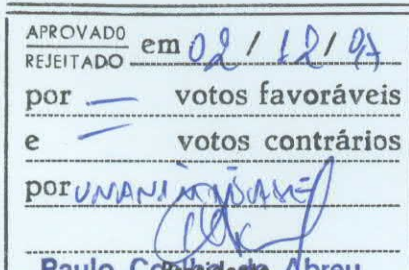 APROVADO
REJEITADO em 02 / 12 / 97
por — votos favoráveis
e — votos contrários
por UNANIMIDADE
Paulo de Abreu